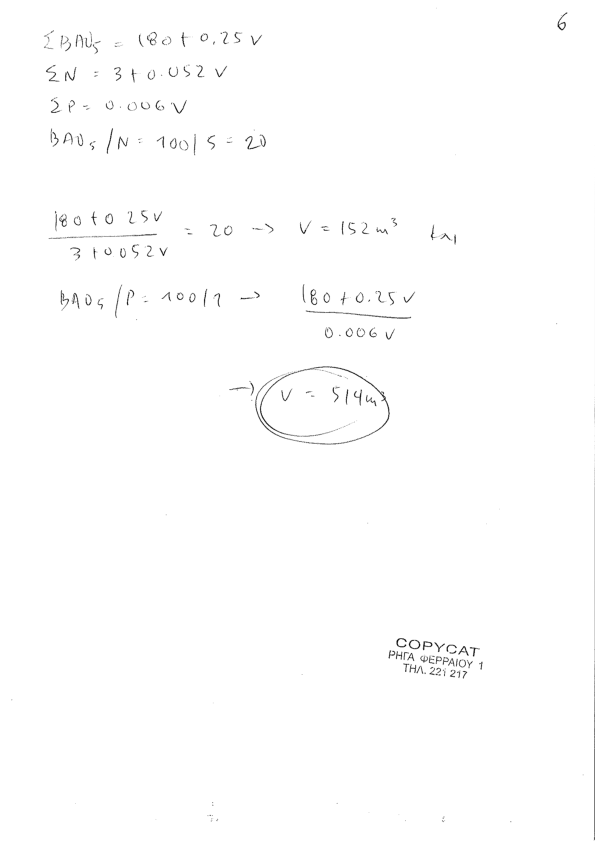 6
ΣBAO₅ = 180 + 0.25 V
ΣN = 3 + 0.052 V
ΣP = 0.006 V
BAO₅ / N = 100 / 5 = 20
180 + 0 25V
3 + 0 052V
= 20 → V = 152 m³
BAO₅ / P = 100 / 1 →
180 + 0.25 V
0.006 V
→ V = 514 m³
COPYCAT
ΡΗΓΑ ΦΕΡΡΑΙΟΥ 1
ΤΗΛ. 221 217